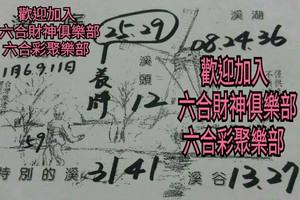 歡迎加入
六合財神俱樂部
六合彩聚樂部
25.29
溪湖
08.24.36
1月6.9.11日
溪頭
12
59
歡迎加入
六合財神俱樂部
六合彩聚樂部
特別的溪 3141
溪谷 13.27